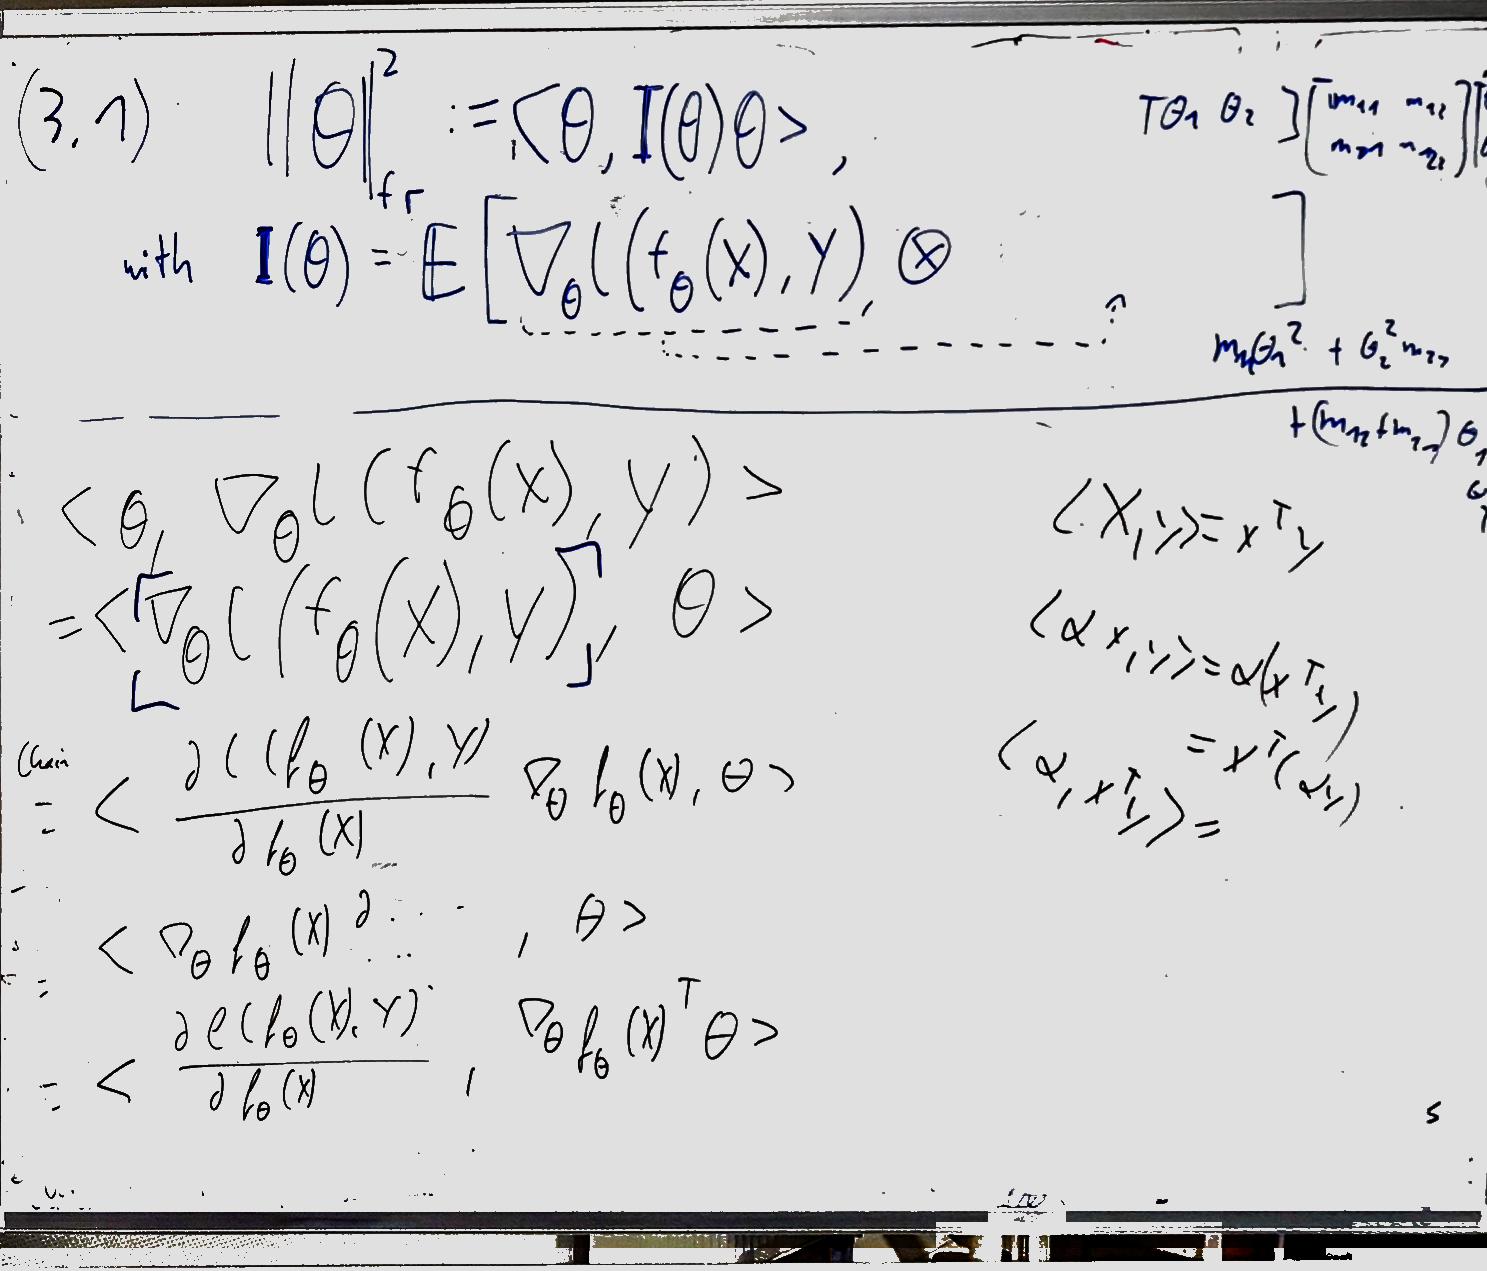 (3.1) ||θ||²_fr := <θ, I(θ)θ>,
with I(θ) = E[∇_θ l(f_θ(X), Y) ⊗ ]
θ₁ θ₂ ] [ m₁₁ m₁₂
m₂₁ m₂₂ ]
m₁₁θ₁² + θ₂² m₂₂
+ (m₁₂ + m₂₁) θ₁
<θ, ∇_θ l(f_θ(X), Y)>
= <[∇_θ l(f_θ(X), Y)], θ>
Chain
= < ∂l(f_θ(X), Y) / ∂f_θ(X) ∇_θ f_θ(X), θ>
= < ∇_θ f_θ(X) ∂ ... , θ>
= < ∂ℓ(f_θ(X), Y) / ∂f_θ(X) , ∇_θ f_θ(X)^T θ>
<X, y> = x^T y
<αx, y> = α(x^T y)
= x^T(αy)
<α, x^T y> =
s